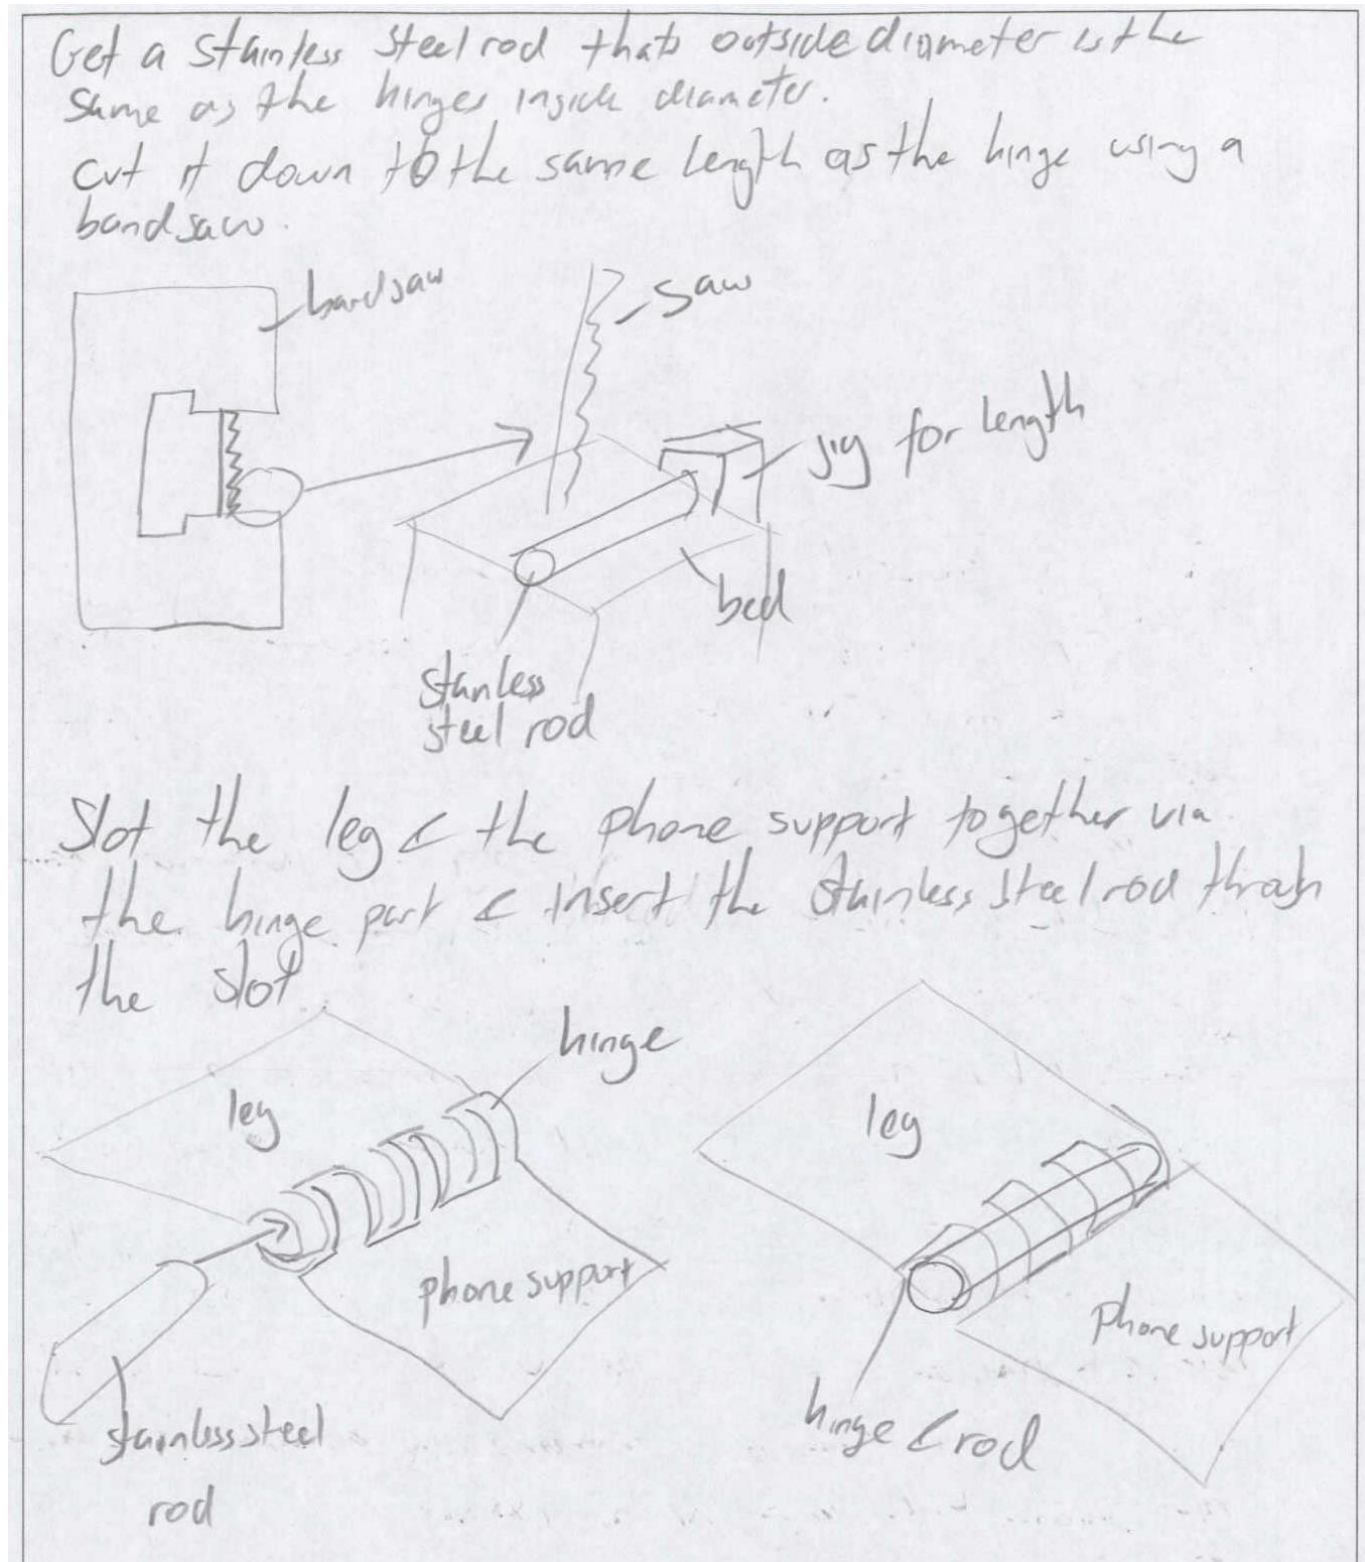 Get a Stainless Steel rod thats outside diameter is the
same as the hinges inside diameter.
cut it down to the same length as the hinge using a
bandsaw.
bandsaw
saw
jig for length
bed
stanless
steel rod
Slot the leg & the phone support together via
the hinge part & insert the stainless steel rod throgh
the slot
hinge
leg
leg
phone support
phone support
stainless steel
rod
hinge & rod